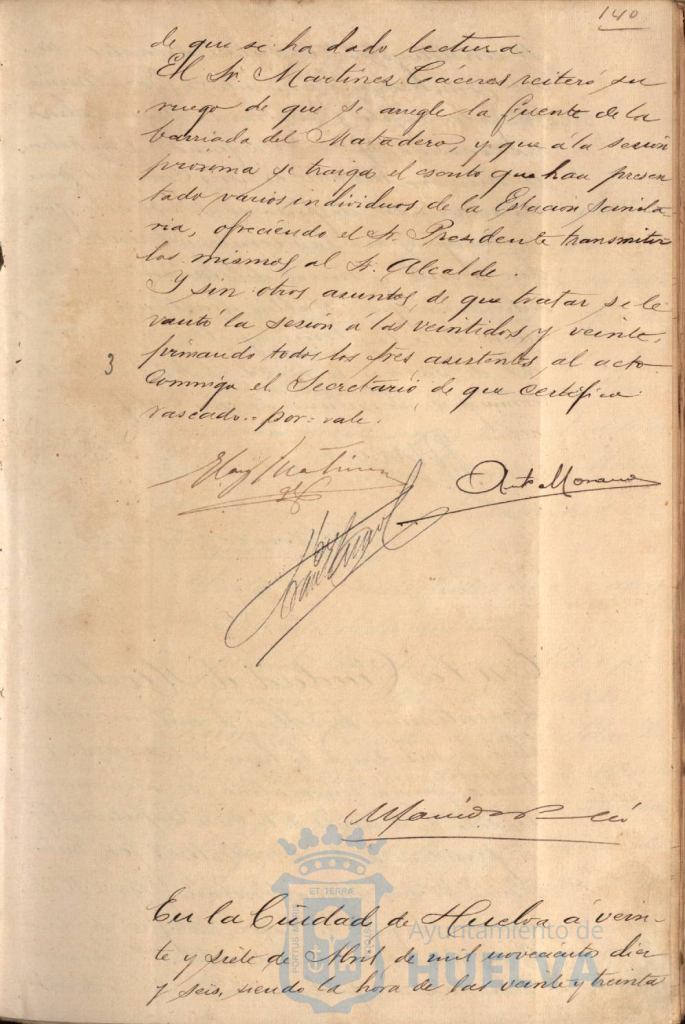 140
de que se ha dado lectura.
El Sr. Martinez Cáceres reiteró su
ruego de que se arregle la fuente de la
barriada del Matadero, y que á la sesión
próxima se traiga el escrito que han presen
tado varios individuos de la Estacion Sanita
ria, ofreciendo el Sr. Presidente transmitir
los mismos al Sr. Alcalde.
Y sin otros asuntos de que tratar se le
vantó la sesión á las veintidos y veinte,
firmando todos los tres asistentes al acto
conmigo el Secretario de que certifico
rascado = por = vale.
3
Eloy Martinez
Anto Moreno
En la Ciudad de Huelva á vein
te y siete de Abril de mil novecientos diez
y seis, siendo la hora de las veinte y treinta
ET TERRA
PORTUS MARIS
CUSTODIA
Ayuntamiento de
HUELVA